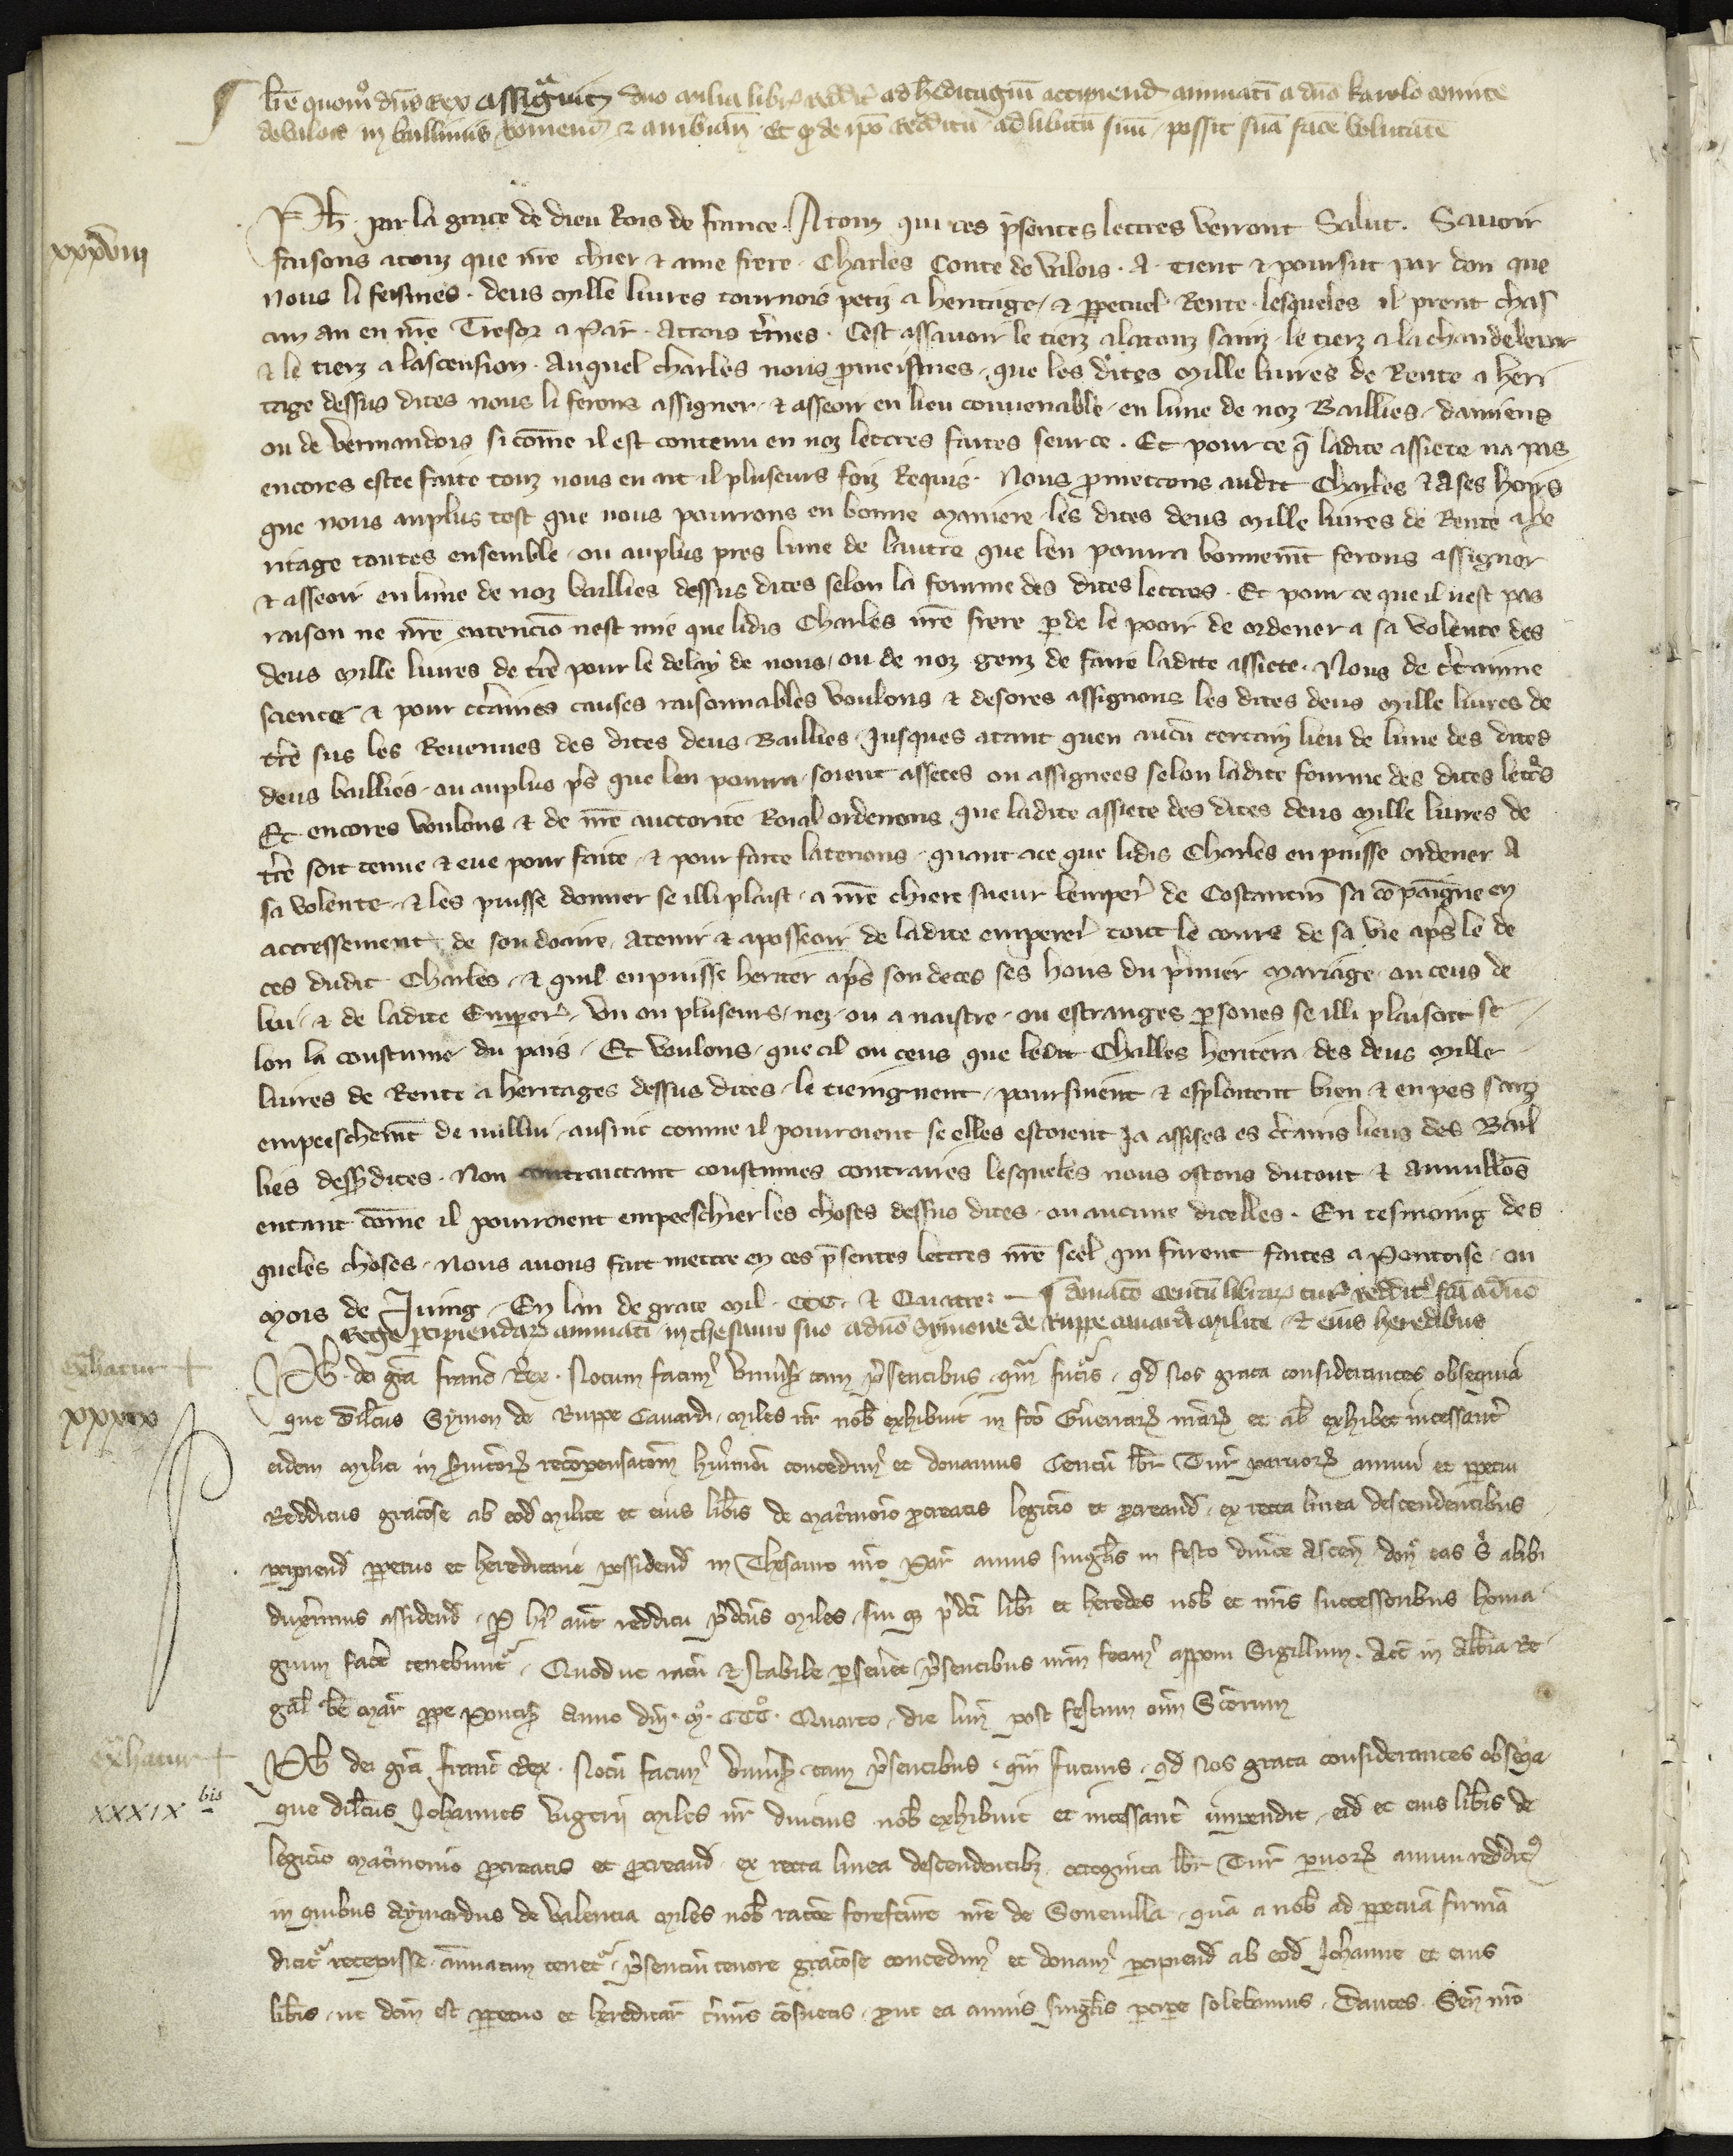 ¶ Lr̄e quom̊ dn̄s Rex assigᷓuit duo milia libr̄ reddit̄ ad h̄editagiū accipiend̄ annuatī a dn̄o karolo comite
de valois in balliuiis viromend̄ ⁊ ambiañ. Et ꝙ de ip̄o redditu ad libitū suū possit suā fac̄e volūtatē
xxxviii
Ph̄. par la grace de dieu Rois de france. A touz qui ces p̄sentes lettres verront Salut. Sauoir
faisons a touz que nr̄e chier ⁊ ame frere Charles Conte de valois. A tient ⁊ poursut par don que
nous li feismes. deus mille liures tournois petiz a heritage, ⁊ ꝑpetuel Rente. lesqueles il prent chas
cun an en nr̄e Tresor a Par̄. A trois t̄mes. Cest assauoir le tierz a la touz sainz. le tierz a la chandeleur
⁊ le tierz a lascension. Auquel charles nous ꝓmeismes. que les dites mille liures de Rente a heri
tage dessus dites nous li ferons assigner. ⁊ asseoir en lieu conuenable. en lune de noz Baillies. damiens
ou de vermandois si com̄e il est contenu en noz lettres faites seur ce. Et pour ce q̄ ladite assiete na pas
encores estee faite touz nous en ait il pluseurs foiz Requis. Nous ꝓmettons audit Charles ⁊ A ses hoirs
que nous au plus tost que nous pourrons en bonne maniere. les dites deus mille liures de Rente a he
ritage toutes ensemble. ou au plus pres lune de lautre que len pourra bonnem̄t ferons assigner
⁊ asseoir en lune de noz baillies dessus dites selon la fourme des dites lettres. Et pour ce que il nest pas
raison ne nr̄e entencion̄ nest mie que lidis Charles nr̄e frere ꝑde le pooir de ordener a sa volente des
deus mille liures de t̄re pour le delay de nous, ou de noz genz de faire ladite assiete. Nous de c̄taine
science ⁊ pour c̄taines causes raisonnables voulons ⁊ desores assignons les dites deus mille liures de
t̄re sus les Reuenues des dites deus Baillies. Jusques a tant quen aucū certain lieu de lune des dites
deus baillies. ou au plus p̄s que len pourra. soient assetes ou assignees selon ladite fourme des dites lettr̄s
Et encores voulons ⁊ de nr̄e auctorite Roial ordenons que ladite assiete des dites deus mille liures de
t̄re soit tenue ⁊ eue pour faite. ⁊ pour faite la tenons. quant a ce que lidis Charles en puisse ordener A
sa volente. ⁊ les puisse donner se il li plaist. a nr̄e chiere sueur lemper̄ de Costantin̄ sa cōpaigne en
acressement de son doaire. A tenir ⁊ a posseoir de ladite emperer̄ tout le cours de sa vie ap̄s le de
ces dudit Charles. ⁊ quil en puisse heriter ap̄s son deces ses hoirs du p̄mier mariage. ou ceus de
lui. ⁊ de ladite Emper̄. vn ou pluseurs, nez. ou a naistre. ou estranges ꝑsones se il li plaisoit se
lon la coustume du pais. Et voulons. que cil ou ceus que ledit Challes heritera des deus mille
liures de Rente a heritages dessus dites. le tieignent. poursuient ⁊ esploitent bien ⁊ en pes sanz
empeeschem̄t de nullui. ausint comme il pourroient se elles estoient ja assises es c̄tains lieus des Bail
lies dess⁹dites. Non contraictant coustumes contraires lesqueles nous ostons du tout ⁊ anullōs
en tant com̄e il pourroient empeeschier les choses dessus dites. ou aucune dicelles. En tesmoing des
queles choses. Nous auons fait mettre en ces p̄sentes lettres nr̄e seel. qui furent faites a Pontoise. ou
mois de Juing. En lan de grace mil. CCC. ⁊ Quatre: — ¶ donatō centū librar̄ tur̄ reddit̄ fcā a dn̄o
Rege ꝑcipiendar̄ annuatī in thesauro suo a dn̄o Symone de Ruppe cauardi milite. ⁊ eius heredibus
ext̄hatur +
xxxix
Ph̄. dei grā Franc̄ Rex. Notum facim⁹ vniuīs tam p̄sentibus qᷓm futīs. qd̄ Nos grata considerantes obsequia
que dilc̄us Symon de Ruppe Cauardi. miles nr̄ nob̄ exhibuit in fc̄o Guerrar̄ nr̄ar̄ et ab exhibet incessant̄
eidem militi in s̄uitior̄ recōpensacōm hui⁹mōi concedim⁹ et donamus Centū libr̄ Tur̄ paruor̄ annui et ꝑpetui
Redditus graciōse ab eod̄ milite et eius lib̄is de mat̄monio ꝓcreatis legitīo et ꝓcreand̄. ex recta linea descendentibus
ꝑcipiend̄ ꝑpetuo et hereditarie possidend̄ in Thesauro nr̄o Par̄ annis singl̄is in festo dn̄ice Ascen̄. don̄ eas s̄ alibi
duxerimus assidend̄. P̄ h⁹ aut̄ redditu p̄dc̄us miles, sui qᷓ p̄dc̄i lib̄i et heredes nob̄ et nr̄is successoribus homa
gium fac̄e tenebunt̄. Quod ut ratū ⁊ stabile ꝑseueret p̄sentibus nr̄m fecim⁹ apponi Sigillum. Act̄ in Abb̄ia Re
gal̄ b̄e mar̄ ꝓpe Pontis̄ Anno dn̄i. M̊. CCC̊. Quarto, die lun̄ post festum oīm S̄corum
ext̄hatur +
XXXIX bis
Ph̄ dei grā franc̄ Rex. Notū facim⁹ vniuīs tam p̄sentibus. qᷓm futuris. qd̄ Nos grata considerantes obseqᷓa
que dilc̄us Johannes vigerii miles nr̄ diucius nob̄ exhibuit et incessant̄ impendit, eid̄ et eius lib̄is de
legitīo mat̄monio ꝓcreatis et ꝓcreand̄ ex recta linea descendentibꝫ. octoginta libr̄ Tur̄ ꝑuor̄ annui reddit⁹
in quibus Aymardus de Valencia miles nob̄ rac̄oe forefc̄ure nr̄e de Soneuilla. quā a nob̄ ad ꝑpetuā firmā
dicit̄ recepisse. annuatim tenet̄. p̄sentiū tenore graciōse concedim⁹ et donam⁹ ꝑcipiend̄ ab eod̄ Joh̄anne et eius
lib̄is. ut dcm̄ est ꝑpetuo et hereditar̄ t̄mīs cōsuetis. ꝓut ea annis singl̄is ꝑcip̄e solebamus. Dantes. Sen̄ nr̄o